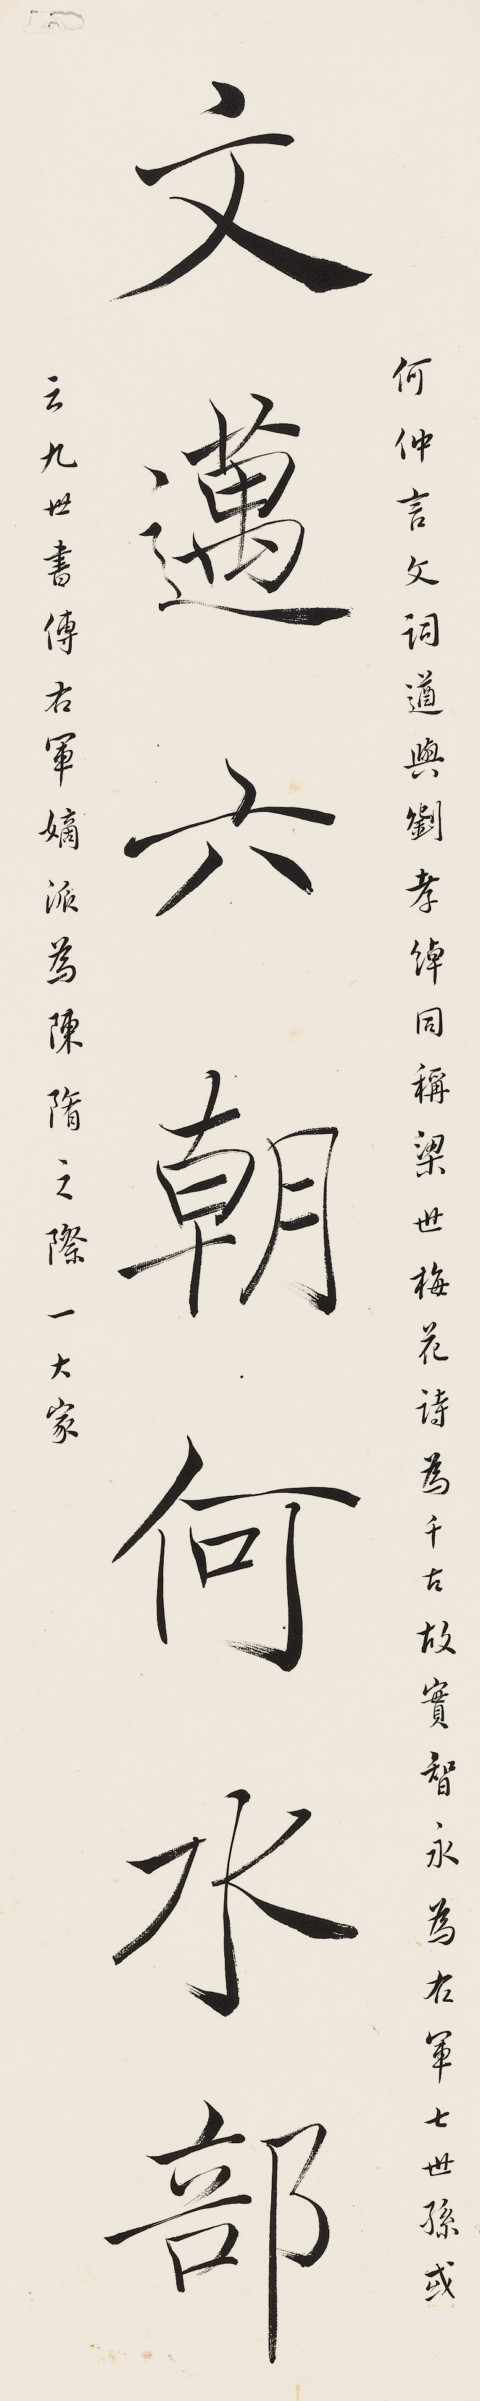 何仲言文詞遒與劉孝綽同稱梁世梅花詩為千古故實智永為右軍七世孫或
文邁六朝何水部
云九世書傳右軍嫡派為陳隋之際一大家